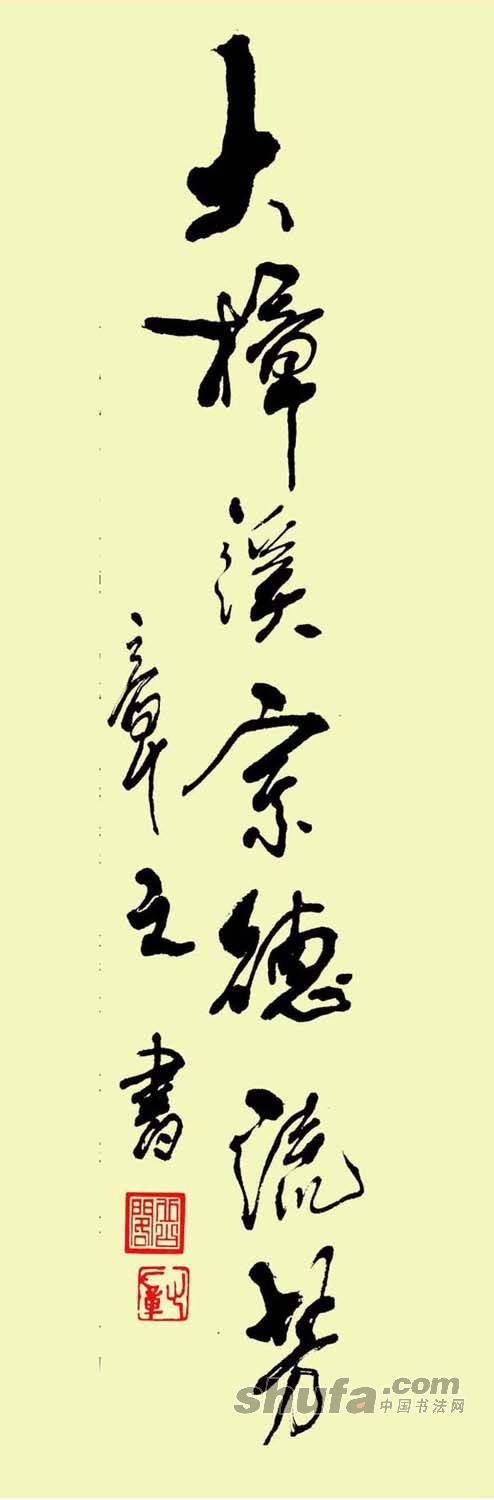 大樟溪宗德流芳
章之書
shufa.com
中国书法网